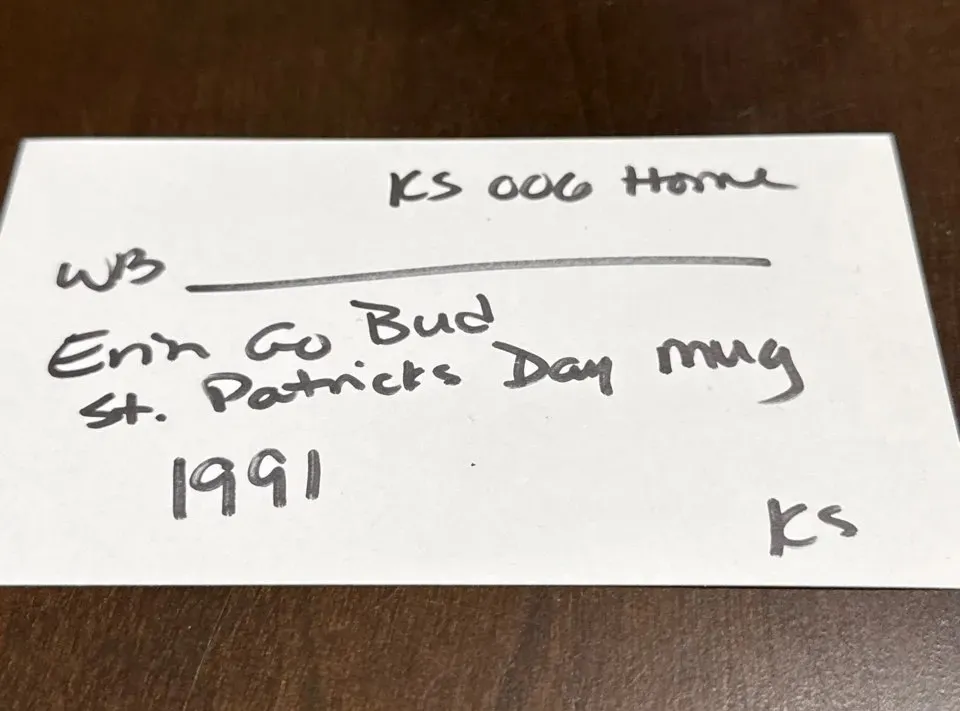 KS 006 Home
WB ________________
Erin Go Bud
St. Patricks Day mug
1991
KS